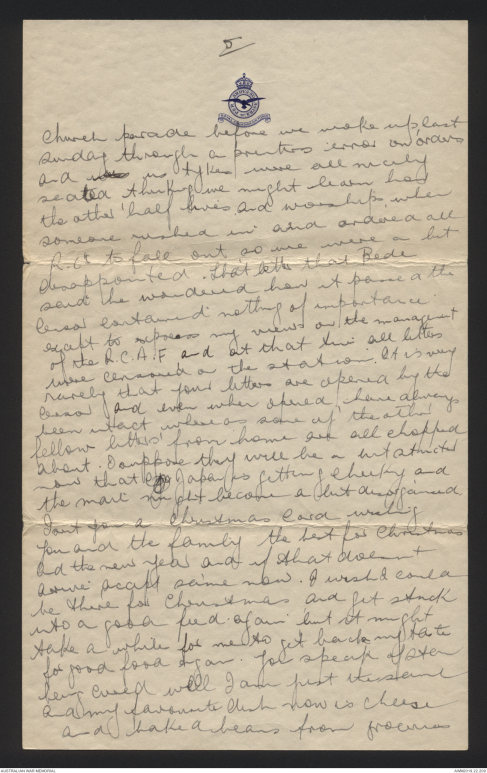 5
church parade before we woke up last
sunday through a printers error on orders
and us tykes were all nicely
seated thinking we might learn how
the other half lives and worships when
someone rushed in and ordered all
R.C's to fall out so we were a bit
disappointed. That letter that Bede
said he wondered how it passed the
censor contained nothing of importance
except to express my views on the management
of the R.C.A.F and at that time all letters
were censored on the station. It is very
rarely that your letters are opened by the
censor and even when opened have always
been intact whereas some of the other
fellows letters from home are all chopped
about. I suppose they will be a bit stricter
now that Japan is getting cheeky and
the mail might become a bit disorganised
I sent you a Christmas Card wishing
you and the family the best for Christmas
and the new year and if that doesn't
arrive accept same now. I wish I could
be there for Christmas and get stuck
into a good feed again but it might
take a while for me to get back my taste
for good food again. You speak of Stan
being cured well I am just the same
and my favourite dish now is cheese
and baked beans from groceries
AUSTRALIAN WAR MEMORIAL